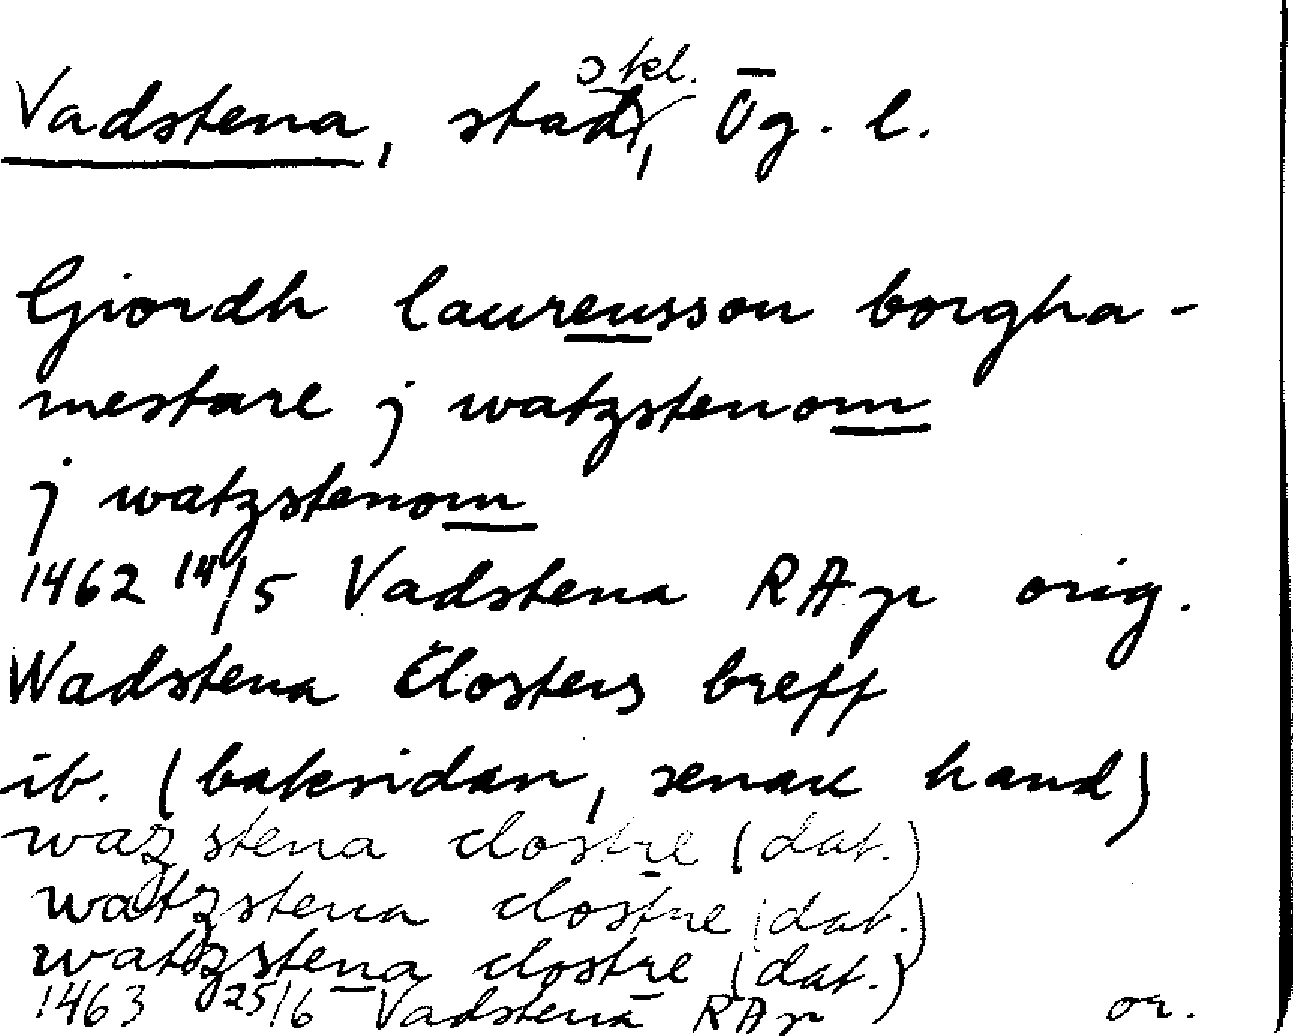 Vadstena, stad o kl., Ög. l.
Giordh laurensson borgha-
mestare j watzstenom
j watzstenom
1462 14/5 Vadstena RAp orig.
Wadstena Closters breff
ib. (baksidan, senare hand)
wazstena clostre (dat.)
watzstena clostre (dat.)
watzstena clostre (dat.)
1463 25/6 Vadstena RAp or.